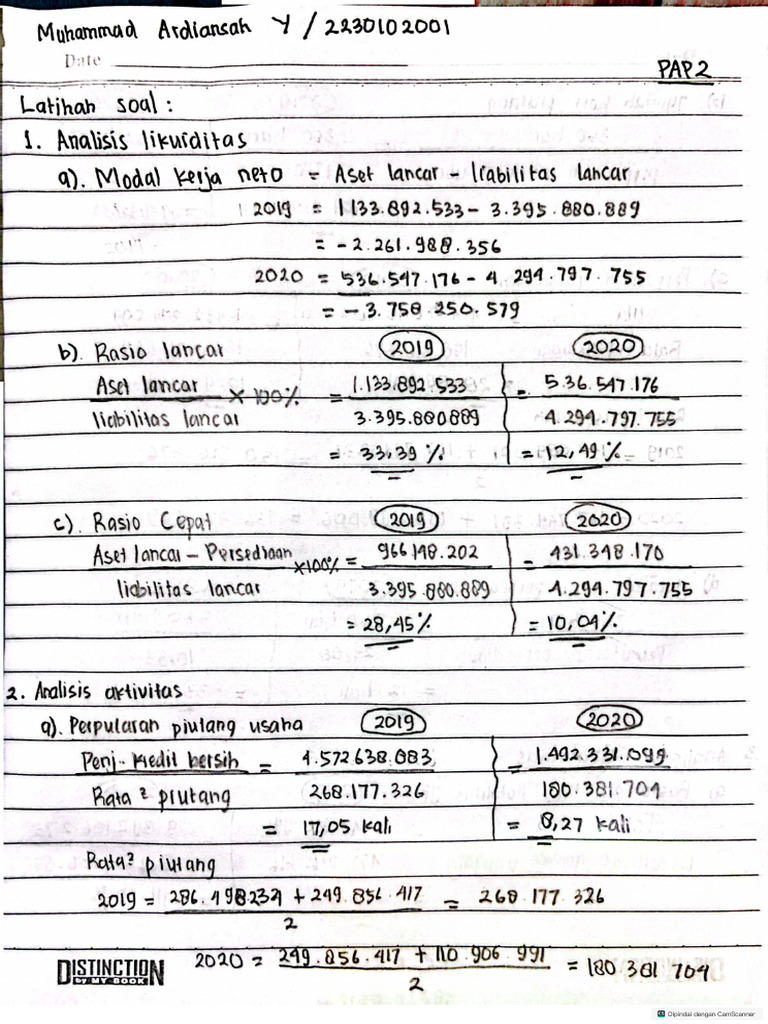 Muhammad Ardiansah Y / 2230102001
Date
PAP2
Latihan soal :
1. Analisis likuiditas
a). Modal kerja neto = Aset lancar - liabilitas lancar
2019 = 1.133.892.533 - 3.395.880.889
= - 2.261.988.356
2020 = 536.547.176 - 4.294.797.755
= - 3.758.250.579
b). Rasio lancar 2019 2020
Aset lancar x 100% = 1.133.892.533 = 536.547.176
liabilitas lancar 3.395.880.889 4.294.797.755
= 33,39 % = 12,49 %
c). Rasio Cepat 2019 2020
Aset lancar - Persediaan x100% = 966.148.202 = 431.348.170
liabilitas lancar 3.395.880.889 4.294.797.755
= 28,45 % = 10,04 %
2. Analisis aktivitas
a). Perputaran piutang usaha 2019 2020
Penj. kredit bersih = 4.572.638.083 = 1.492.331.099
Rata² piutang 268.177.326 180.381.704
= 17,05 kali = 8,27 kali
Rata² piutang
2019 = 286.498.234 + 249.856.417 = 268.177.326
2
2020 = 249.856.417 + 110.906.991 = 180.381.704
2
DISTINCTION
BY MY BOOK
Dipindai dengan CamScanner